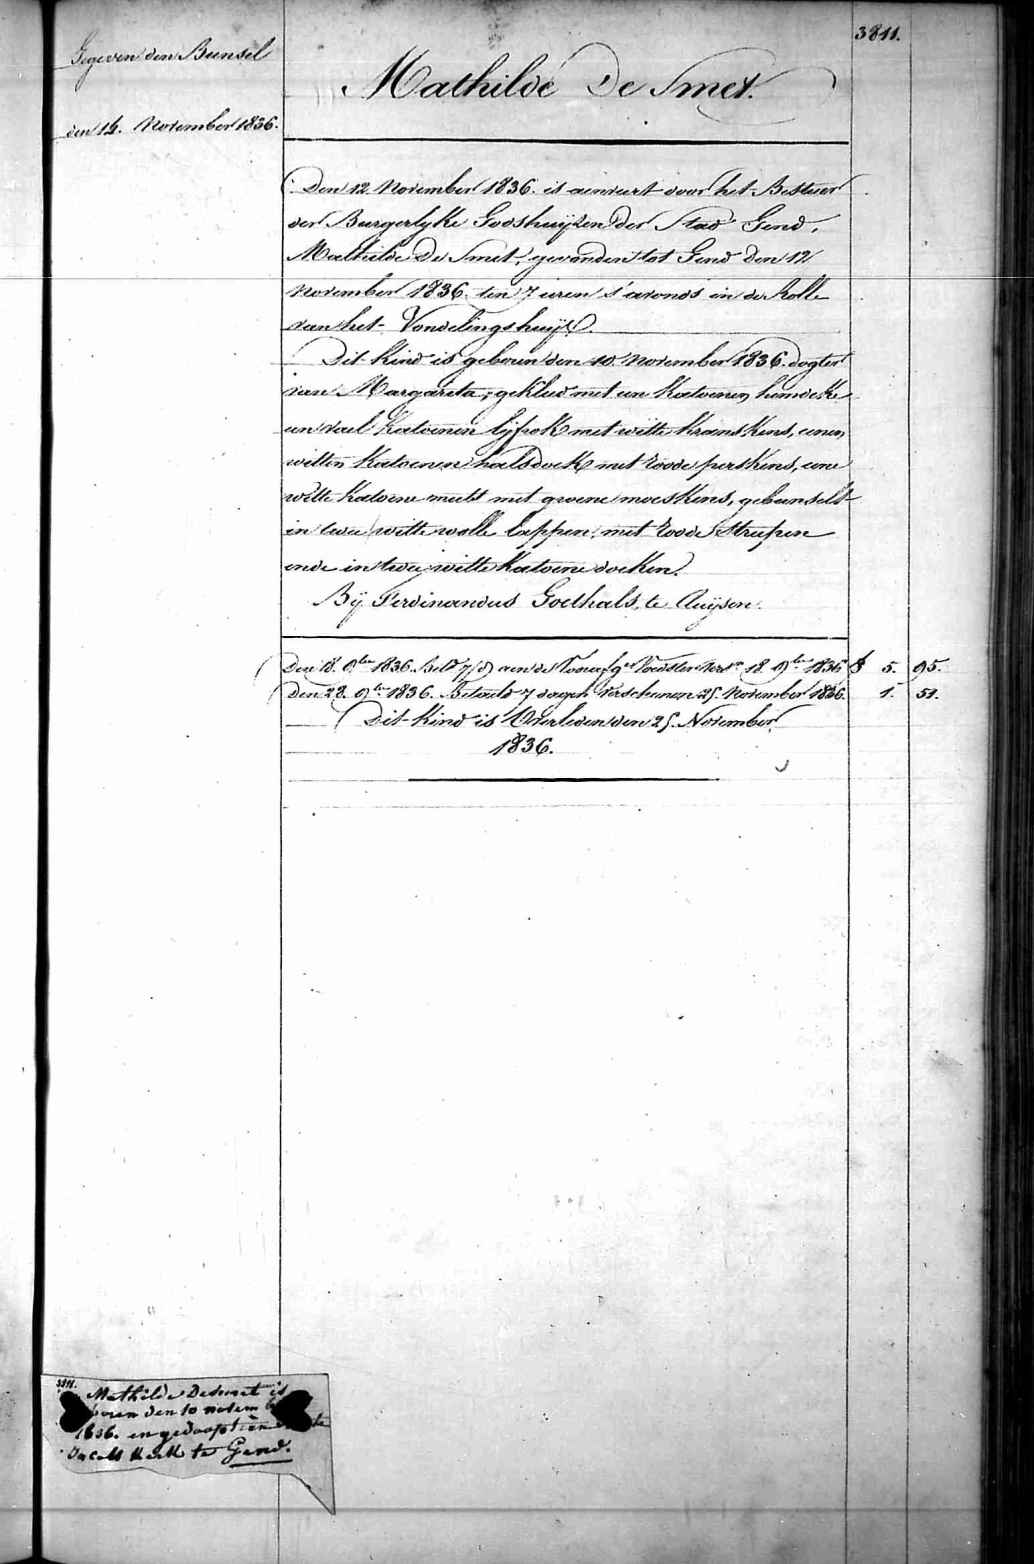 3811.
Gegeven den Bunsel
den 14. November 1836.
Mathilde De Smet.
Den 12 November 1836. is aenveert door het Bestuer
der Burgerlyke Godshuijzen der Stad Gend,
Mathilde De Smet, gevonden tot Gend den 12
November 1836. ten 7 uren s'avonds in de Rolle
van het Vondelingshuijs.
Dit Kind is geboren den 10 November 1836. dogter
van Margareta, gekleed met een Katoenen hemdeke
een vael Katoenen lijfrok met witte kranskens, eenen
witten Katoenen halsdoek met roode perskens, eene
witte Katoene muts met groene moeskens, gebunselt
in twee witte wolle lappen, met roode streepen
ende in twee witte Katoene doeken.
Bÿ Ferdinandus Goethals, te
Den 18. 9ber 1836. Bet 7/ aen de 18. 9ber 1836 5. 95.
Den 28. 9ber 1836. Betaeld 7 dagen verschenen 25. November 1836. 1. 51.
Dit Kind is Overleden den 25. November
1836.
3811.
Mathilde Desmet is
den 10 novem
1836. en gedoopt
Jacobs Kerk te Gend.